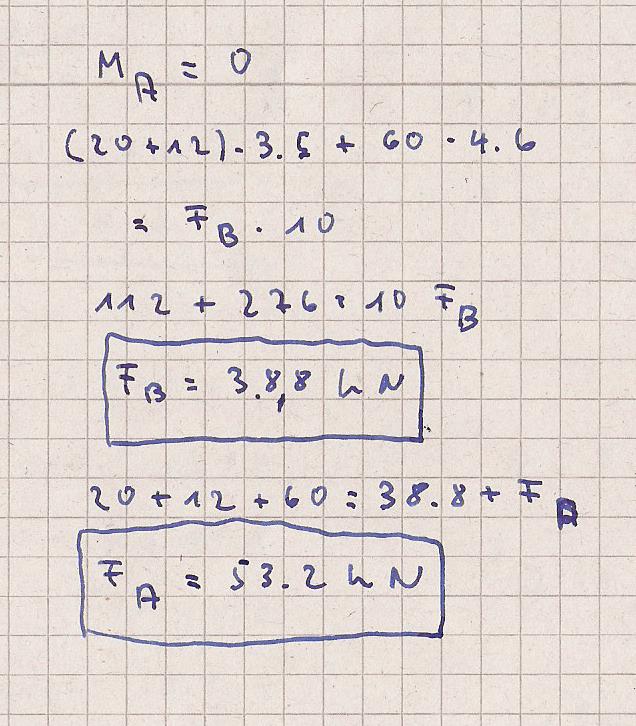 M_A = 0
(20+12)·3.5 + 60·4.6
= F_B · 10
112 + 276 = 10 F_B
F_B = 3.8,8 kN
20 + 12 + 60 = 38.8 + F
F_A = 53.2 kN